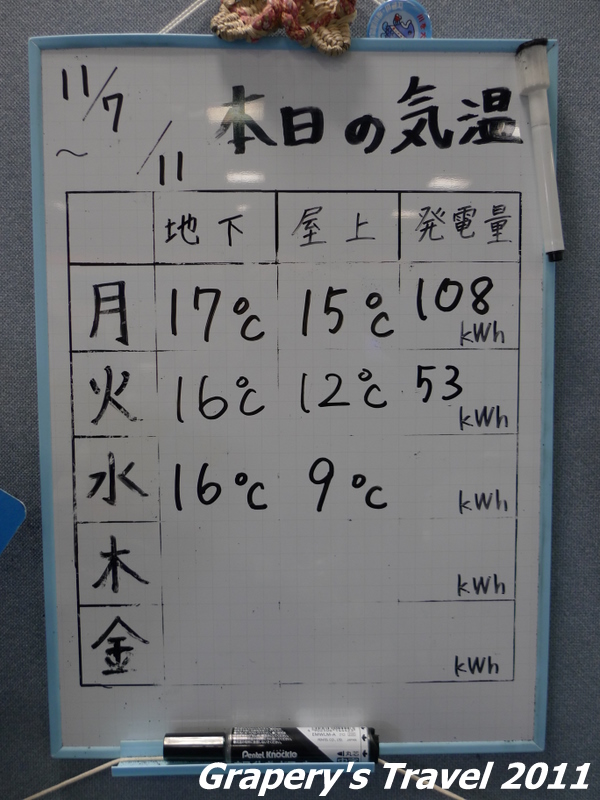 11/7
~ /11
本日の気温
地下 屋上 発電量
月 17℃ 15℃ 108 kWh
火 16℃ 12℃ 53 kWh
水 16℃ 9℃ kWh
木 kWh
金 kWh
Pentel Knockle
Grapery's Travel 2011